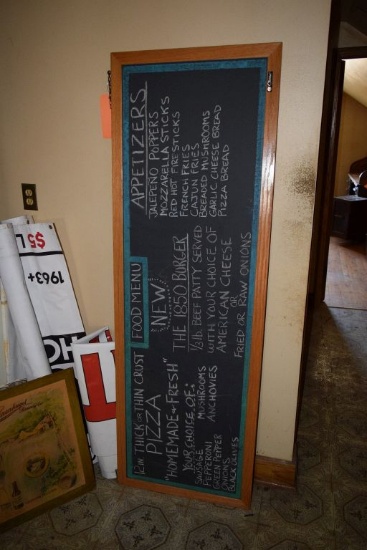 12in THICK OR THIN CRUST
PIZZA
"HOMEMADE & FRESH"
YOUR CHOICE OF:
SAUSAGE
PEPPERONI
GREEN PEPPER
ONIONS
BLACK OLIVES
MUSHROOMS
ANCHOVIES
FOOD MENU
NEW!
THE 1850 BURGER
1/3 lb. BEEF PATTY SERVED
WITH YOUR CHOICE OF
AMERICAN CHEESE
OR
FRIED OR RAW ONIONS
APPETIZERS
JALEPENO POPPERS
MOZZARELLA STICKS
RED HOT FIRESTICKS
FRENCH FRIES
CAJUN FRIES
BREADED MUSHROOMS
GARLIC CHEESE BREAD
PIZZA BREAD
$5
1963+